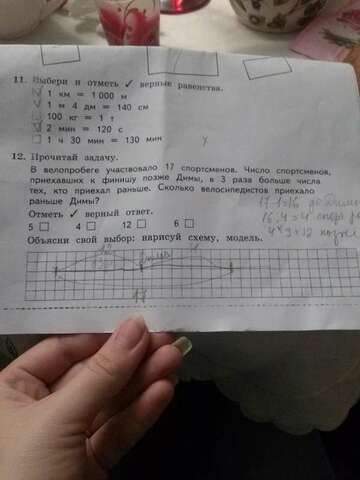 11. Выбери и отметь ✓ верные равенства.
1 км = 1 000 м
1 м 4 дм = 140 см
100 кг = 1 т
2 мин = 120 с
1 ч 30 мин = 130 мин
12. Прочитай задачу.
В велопробеге участвовало 17 спортсменов. Число спортсменов,
приехавших к финишу позже Димы, в 3 раза больше числа
тех, кто приехал раньше. Сколько велосипедистов приехало
раньше Димы?
Отметь ✓ верный ответ.
5 4 12 6
17-1=16
16:4=4
4*3=12
Объясни свой выбор: нарисуй схему, модель.
12
17